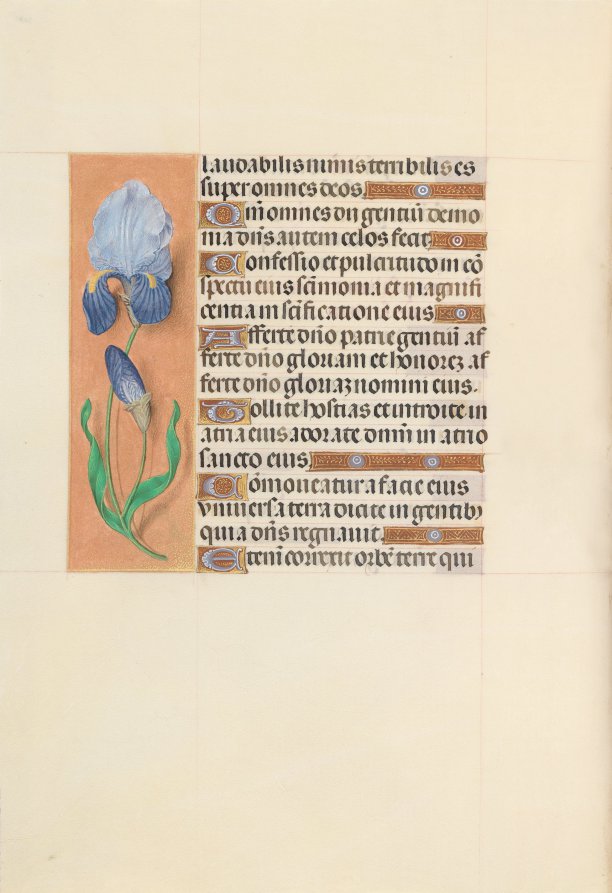 laudabilis nimis terribilis es
super omnes deos
Qm̄ omnes dii gentiū demo
nia dn̄s autem celos fecit
Confessio et pulcritudo in cō
spectu eius sc̄imonia et magnifi
centia in sc̄ificatione eius
Afferte dn̄o patrie gentiū af
ferte dn̄o gloriam et honorez af
ferte dn̄o gloriaz nomini eius.
Tollite hostias et introite in
atria eius adorate dnm̄ in atrio
sancto eius
Cōmoueatur a facie eius
vniuersa terra dicite in gentibꝫ
quia dn̄s regnauit
Eteni correxit orbē terre qui